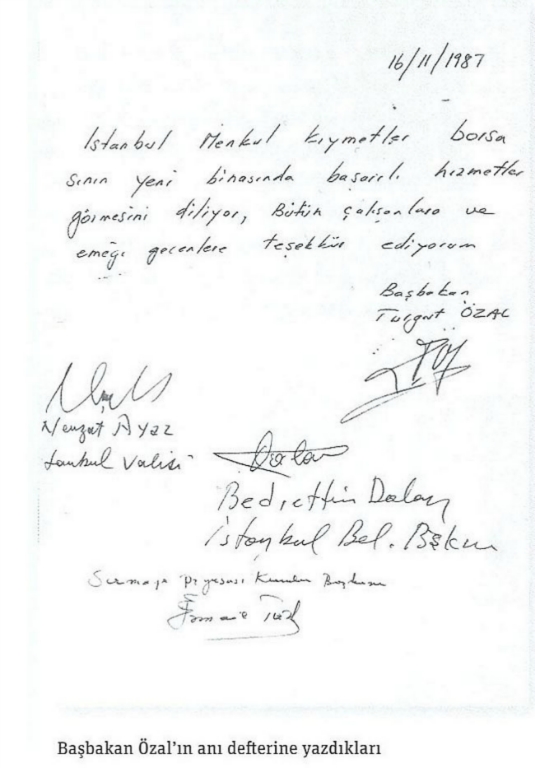 16/11/1987
Istanbul Menkul kıymetler borsa
sının yeni binasında başarılı hizmetler
görmesini diliyor, Bütün çalışanlara ve
emeği geçenlere teşekkür ediyorum
Başbakan
Turgut ÖZAL
Nevzat Ayaz
İstanbul Valisi
Dalan
Bedrettin Dalan
İstanbul Bel. Bşkn
Sermaye Piyasası Kurulu Başkanı
İsmail Türk
Başbakan Özal'ın anı defterine yazdıkları